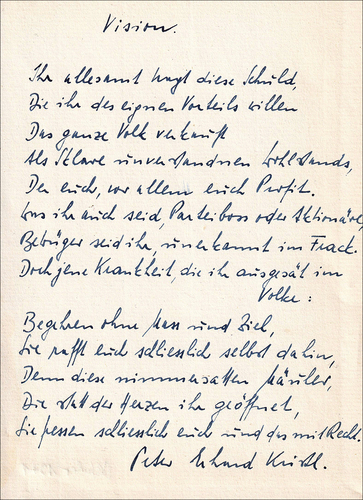 Vision.
Ihr allesamt tragt diese Schuld,
Die ihr des eignen Vorteils willen
Das ganze Volk verkauft
Als Sklave unverstandnen Wohlstands,
Der euch, vor allem euch Profit.
Was ihr auch seid, Parteiboss oder Aktionäre,
Betrüger seid ihr, unerkannt im Frack.
Doch jene Krankheit, die ihr ausgesät im
Volke:
Begehren ohne Mass und Ziel,
Sie rafft euch schliesslich selbst dahin,
Denn diese nimmersatten Mäuler,
Die statt der Herzen ihr geöffnet,
Sie fressen schliesslich euch und das mit Recht.
Peter Erhard